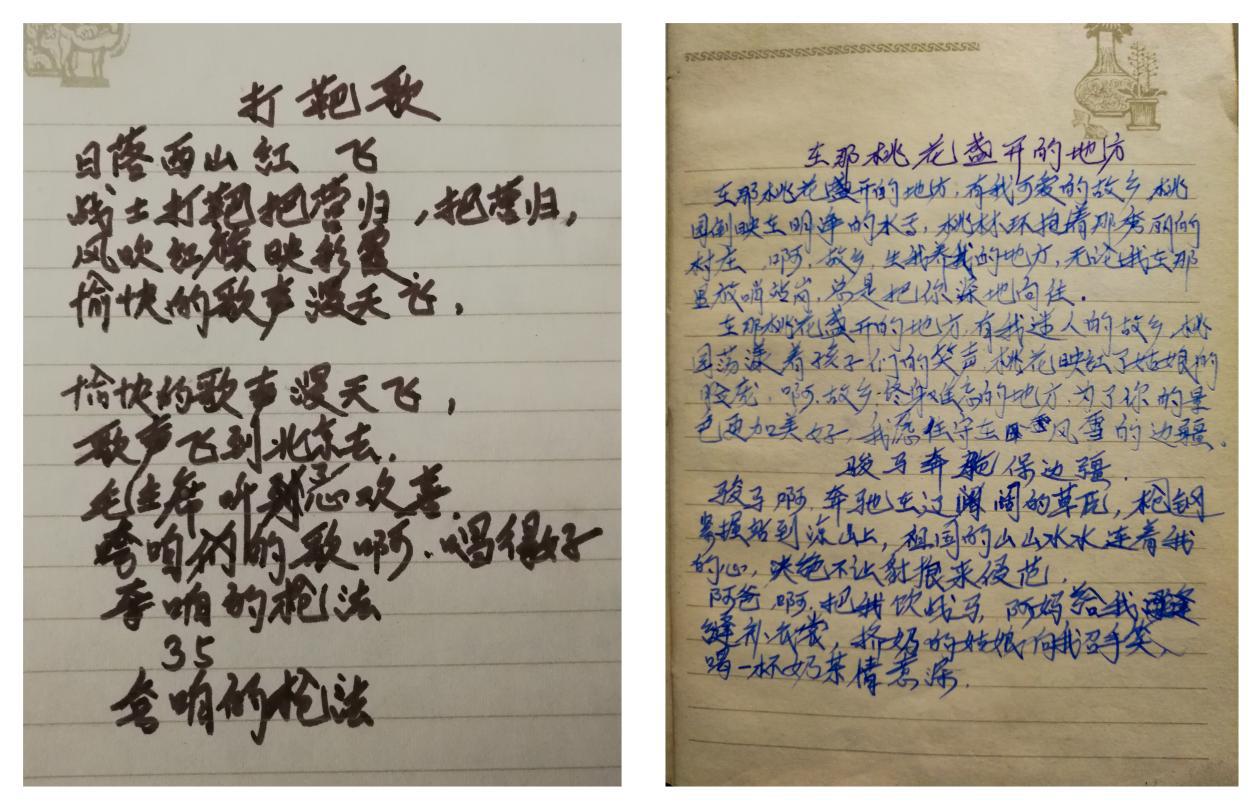 打靶歌
日落西山红 飞
战士打靶把营归，把营归，
风吹红旗映彩霞
愉快的歌声漫天飞，
愉快的歌声漫天飞，
歌声飞到北京去，
毛主席听到心欢喜，
夸咱们的歌啊，唱得好
夸咱的枪法
35
夸咱的枪法
在那桃花盛开的地方
在那桃花盛开的地方，有我可爱的故乡，桃
园倒映在明净的水了，桃林环抱着那秀丽的
村庄，啊，故乡，生我养我的地方，无论我在那
里放哨站岗，总是把你深地向往．
在那桃花盛开的地方，有我迷人的故乡，桃
园荡漾着孩子们的笑声，桃花映红了姑娘的
脸庞，啊，故乡，终身难忘的地方，为了你的景
色更加美好，我愿住守在风雪的边疆、
骏马奔驰保边疆．
骏马啊，奔驰在辽阔的草原，枪钢
紧握站到深山上，祖国的山山水水连着我
的心，决绝不让豺狼来侵范，
阿爸，啊，把我饮战马，阿妈给我
缝补衣裳，挤奶的姑娘向我招手笑、
喝一杯奶茶情意深．